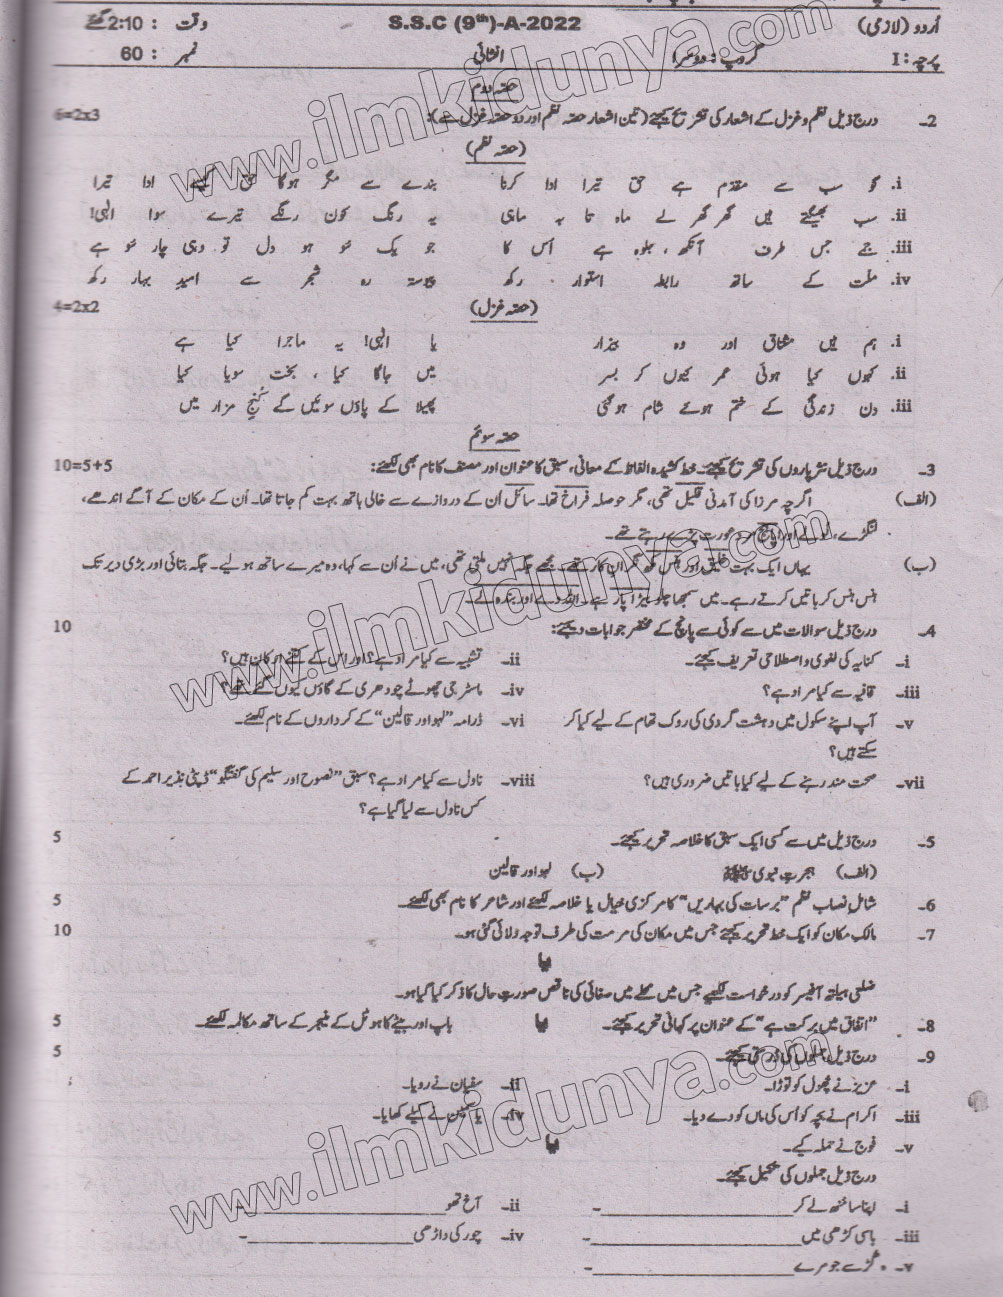 اردو (لازمی) S.S.C (9th)-A-2022 وقت : 2:10 گھنٹے
پرچہ: I گروپ: دوسرا انشائی نمبر : 60
حصہ دوم
2۔ درج ذیل نظم و غزل کے اشعار کی تشریح کیجئے (تین اشعار حصہ نظم اور دو حصہ غزل سے): 6=2x3
(حصہ نظم)
i. گو سب سے مقدم ہے حق تیرا ادا کرنا بندے سے مگر ہوگا حق کیسے ادا تیرا
ii. سب بھیگتے ہیں گھر گھر لے ماہ تا بہ ماہی یہ رنگ کون رنگے تیرے سوا الٰہی!
iii. جے جس طرف آنکھ، جلوہ ہے اُس کا جو یک سُو ہو دل تو وہی چار سُو ہے
iv. ملت کے ساتھ رابطہ استوار رکھ پیوستہ رہ شجر سے امیدِ بہار رکھ
(حصہ غزل) 4=2x2
i. ہم ہیں مشتاق اور وہ بیزار یا الٰہی! یہ ماجرا کیا ہے
ii. کہوں کیا ہوئی عمر کیوں کر بسر میں جاگا کیا، بخت سویا کیا
iii. دن زندگی کے ختم ہوئے شام ہوگئی پھیلا کے پاؤں سوئیں گے کُنجِ مزار میں
حصہ سوئم
3۔ درج ذیل نثر پاروں کی تشریح کیجئے۔ خط کشیدہ الفاظ کے معانی، سبق کا عنوان اور مصنف کا نام بھی لکھئے: 10=5+5
(الف) اگرچہ مرزا کی آمدنی قلیل تھی، مگر حوصلہ فراخ تھا۔ سائل اُن کے دروازے سے خالی ہاتھ بہت کم جاتا تھا۔ اُن کے مکان کے آگے اندھے،
لنگڑے، لولے اور اپاہج مرد عورت پڑے رہتے تھے۔
(ب) یہاں ایک بہت خلیق اور ہنس مکھ نگران کار تھے۔ مجھے جگہ نہیں ملتی تھی، میں نے اُن سے کہا، وہ میرے ساتھ ہولیے۔ جگہ بتائی اور بڑی دیر تک
ہنس ہنس کر باتیں کرتے رہے۔ میں سمجھا چلو بیڑا پار ہے۔ اللہ دے اور بندہ لے۔
4۔ درج ذیل سوالات میں سے کوئی سے پانچ کے مختصر جوابات دیجئے: 10
i۔ کنایہ کی لغوی و اصطلاحی تعریف کیجئے۔ ii۔ تشبیہ سے کیا مراد ہے؟ اور اس کے کتنے ارکان ہیں؟
iii۔ قافیہ سے کیا مراد ہے؟ iv۔ ماسٹر جی چھوٹے چودھری کے گاؤں کیوں گئے تھے؟
v۔ آپ اپنے سکول میں دہشت گردی کی روک تمام کے لیے کیا کر vi۔ ڈرامہ "لہو اور قالین" کے کرداروں کے نام لکھئے۔
سکتے ہیں؟
vii۔ صحت مند رہنے کے لیے کیا باتیں ضروری ہیں؟ viii۔ ناول سے کیا مراد ہے؟ سبق "نصوح اور سلیم کی گفتگو" ڈپٹی نذیر احمد کے
کس ناول سے لیا گیا ہے؟
5۔ درج ذیل میں سے کسی ایک سبق کا خلاصہ تحریر کیجئے۔ 5
(الف) ہجرتِ نبوی ﷺ (ب) لہو اور قالین
6۔ شاملِ نصاب نظم "برسات کی بہاریں" کا مرکزی خیال یا خلاصہ لکھئے اور شاعر کا نام بھی لکھئے۔ 5
7۔ مالک مکان کو ایک خط تحریر کیجئے جس میں مکان کی مرمت کی طرف توجہ دلائی گئی ہو۔ 10
یا
ضلعی ہیلتھ آفیسر کو درخواست لکھیے جس میں محلے میں صفائی کی ناقص صورتِ حال کا ذکر کیا گیا ہو۔
8۔ "اتفاق میں برکت ہے" کے عنوان پر کہانی تحریر کیجئے۔ یا باپ اور بیٹے کا ہوٹل کے منیجر کے ساتھ مکالمہ لکھئے۔ 5
9۔ درج ذیل جملوں کی درستی کیجئے۔ 5
i۔ عزیز نے پھول کو توڑا۔ ii۔ سفیان نے رویا۔
iii۔ اکرام نے بچہ کو اُس کی ماں کو دے دیا۔ iv۔ یاسمین نے کیلے کھایا۔
v۔ فوج نے حملہ کیے۔ یا
درج ذیل جملوں کی تکمیل کیجئے۔
i۔ اپنا سا منھ لے کر ______۔ ii۔ آخ تھو ______۔
iii۔ باسی کڑھی میں ______۔ iv۔ چور کی داڑھی ______۔
v۔ گڑ سے جو مرے ______۔
www.ilmkidunya.com
www.ilmkidunya.com
www.ilmkidunya.com